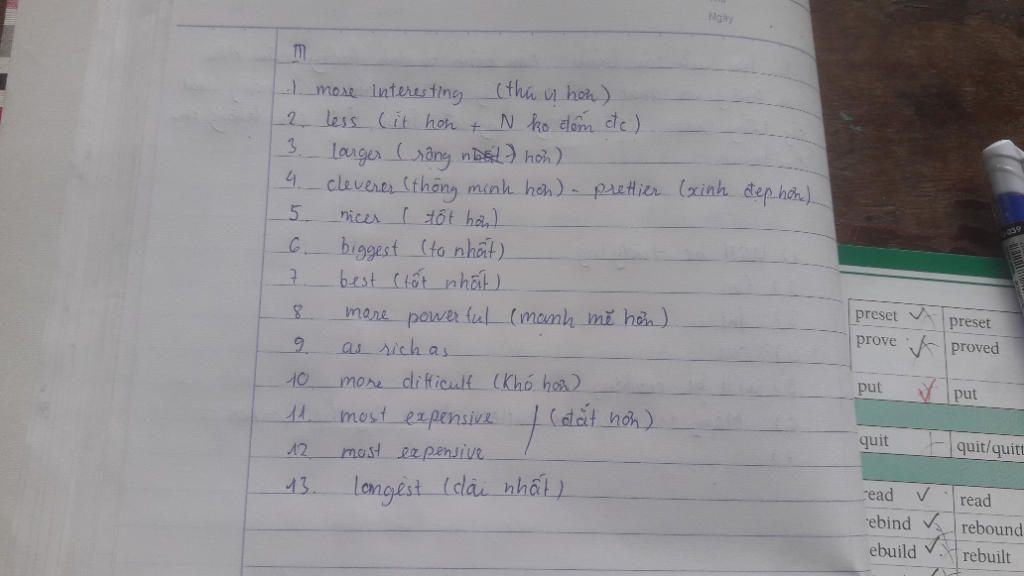 Ngày
III
1 more interesting (thú vị hơn)
2. less (ít hơn + N ko đếm đc)
3. larger (rộng hơn)
4. cleverer (thông minh hơn) - prettier (xinh đẹp hơn)
5. nicer (tốt hơn)
6. biggest (to nhất)
7. best (tốt nhất)
8 more powerful (mạnh mẽ hơn)
9. as rich as
10 more difficult (khó hơn)
11. most expensive (đắt hơn)
12. most expensive
13. longest (dài nhất)
preset preset
prove proved
put put
quit quit/quitt
read read
rebind rebound
ebuild rebuilt